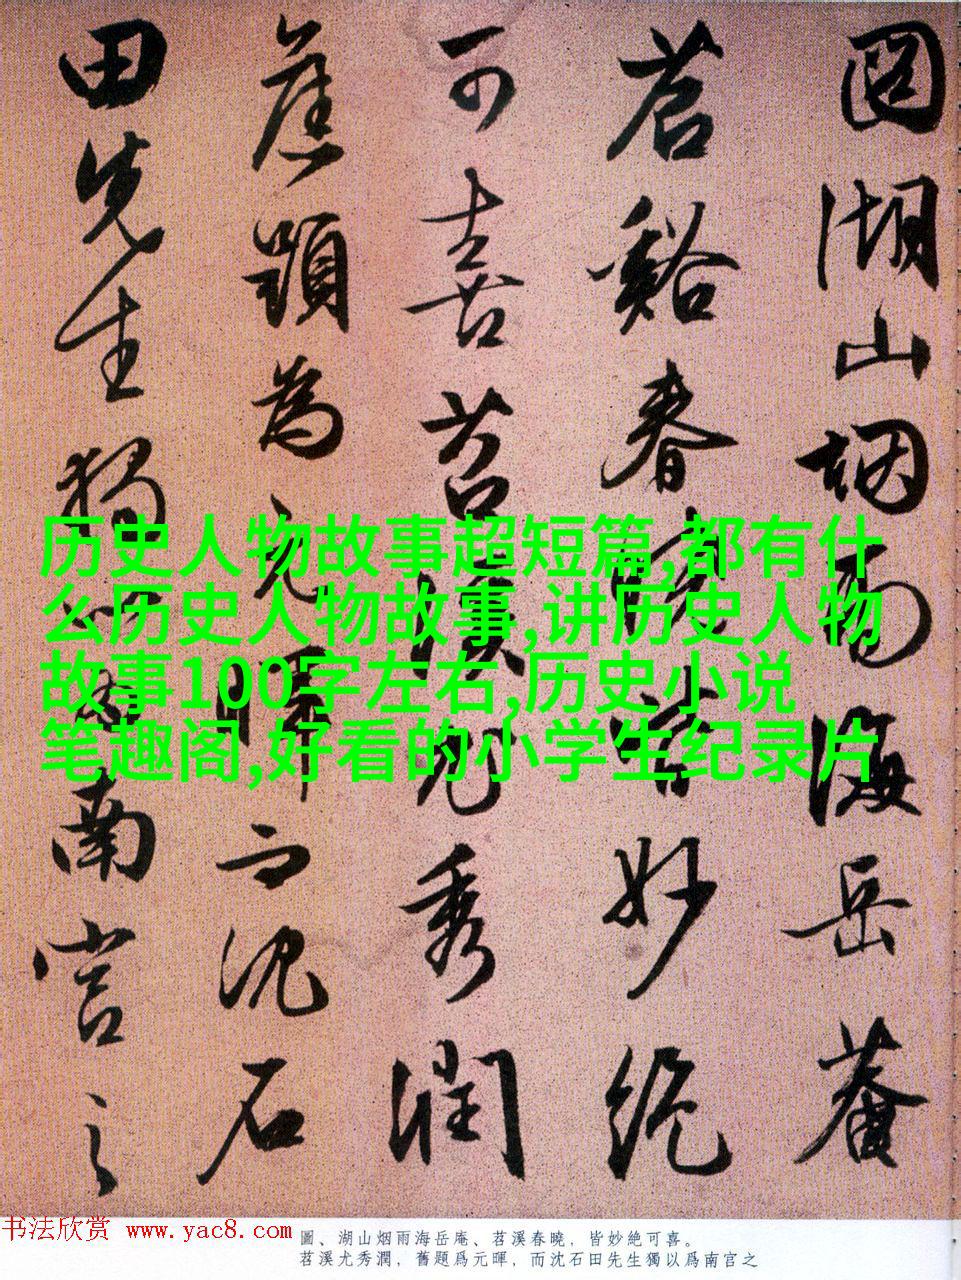 圖湖山烟雨海岳菴
苕谿春曉皆妙絶
可喜苕溪尤秀潤
舊題為元暉而沈石
田先生獨以為南宫之
历史人物故事超短篇,都有什
么历史人物故事,讲历史人物
故事100字左右,历史小说
笔趣阁,好看的小学生纪录片
书法欣赏 www.yac8.com
圖、湖山烟雨海岳庵、苕溪春曉，皆妙絶可喜。
苕溪尤秀潤，舊題爲元暉，而沈石田先生獨以爲南宫之